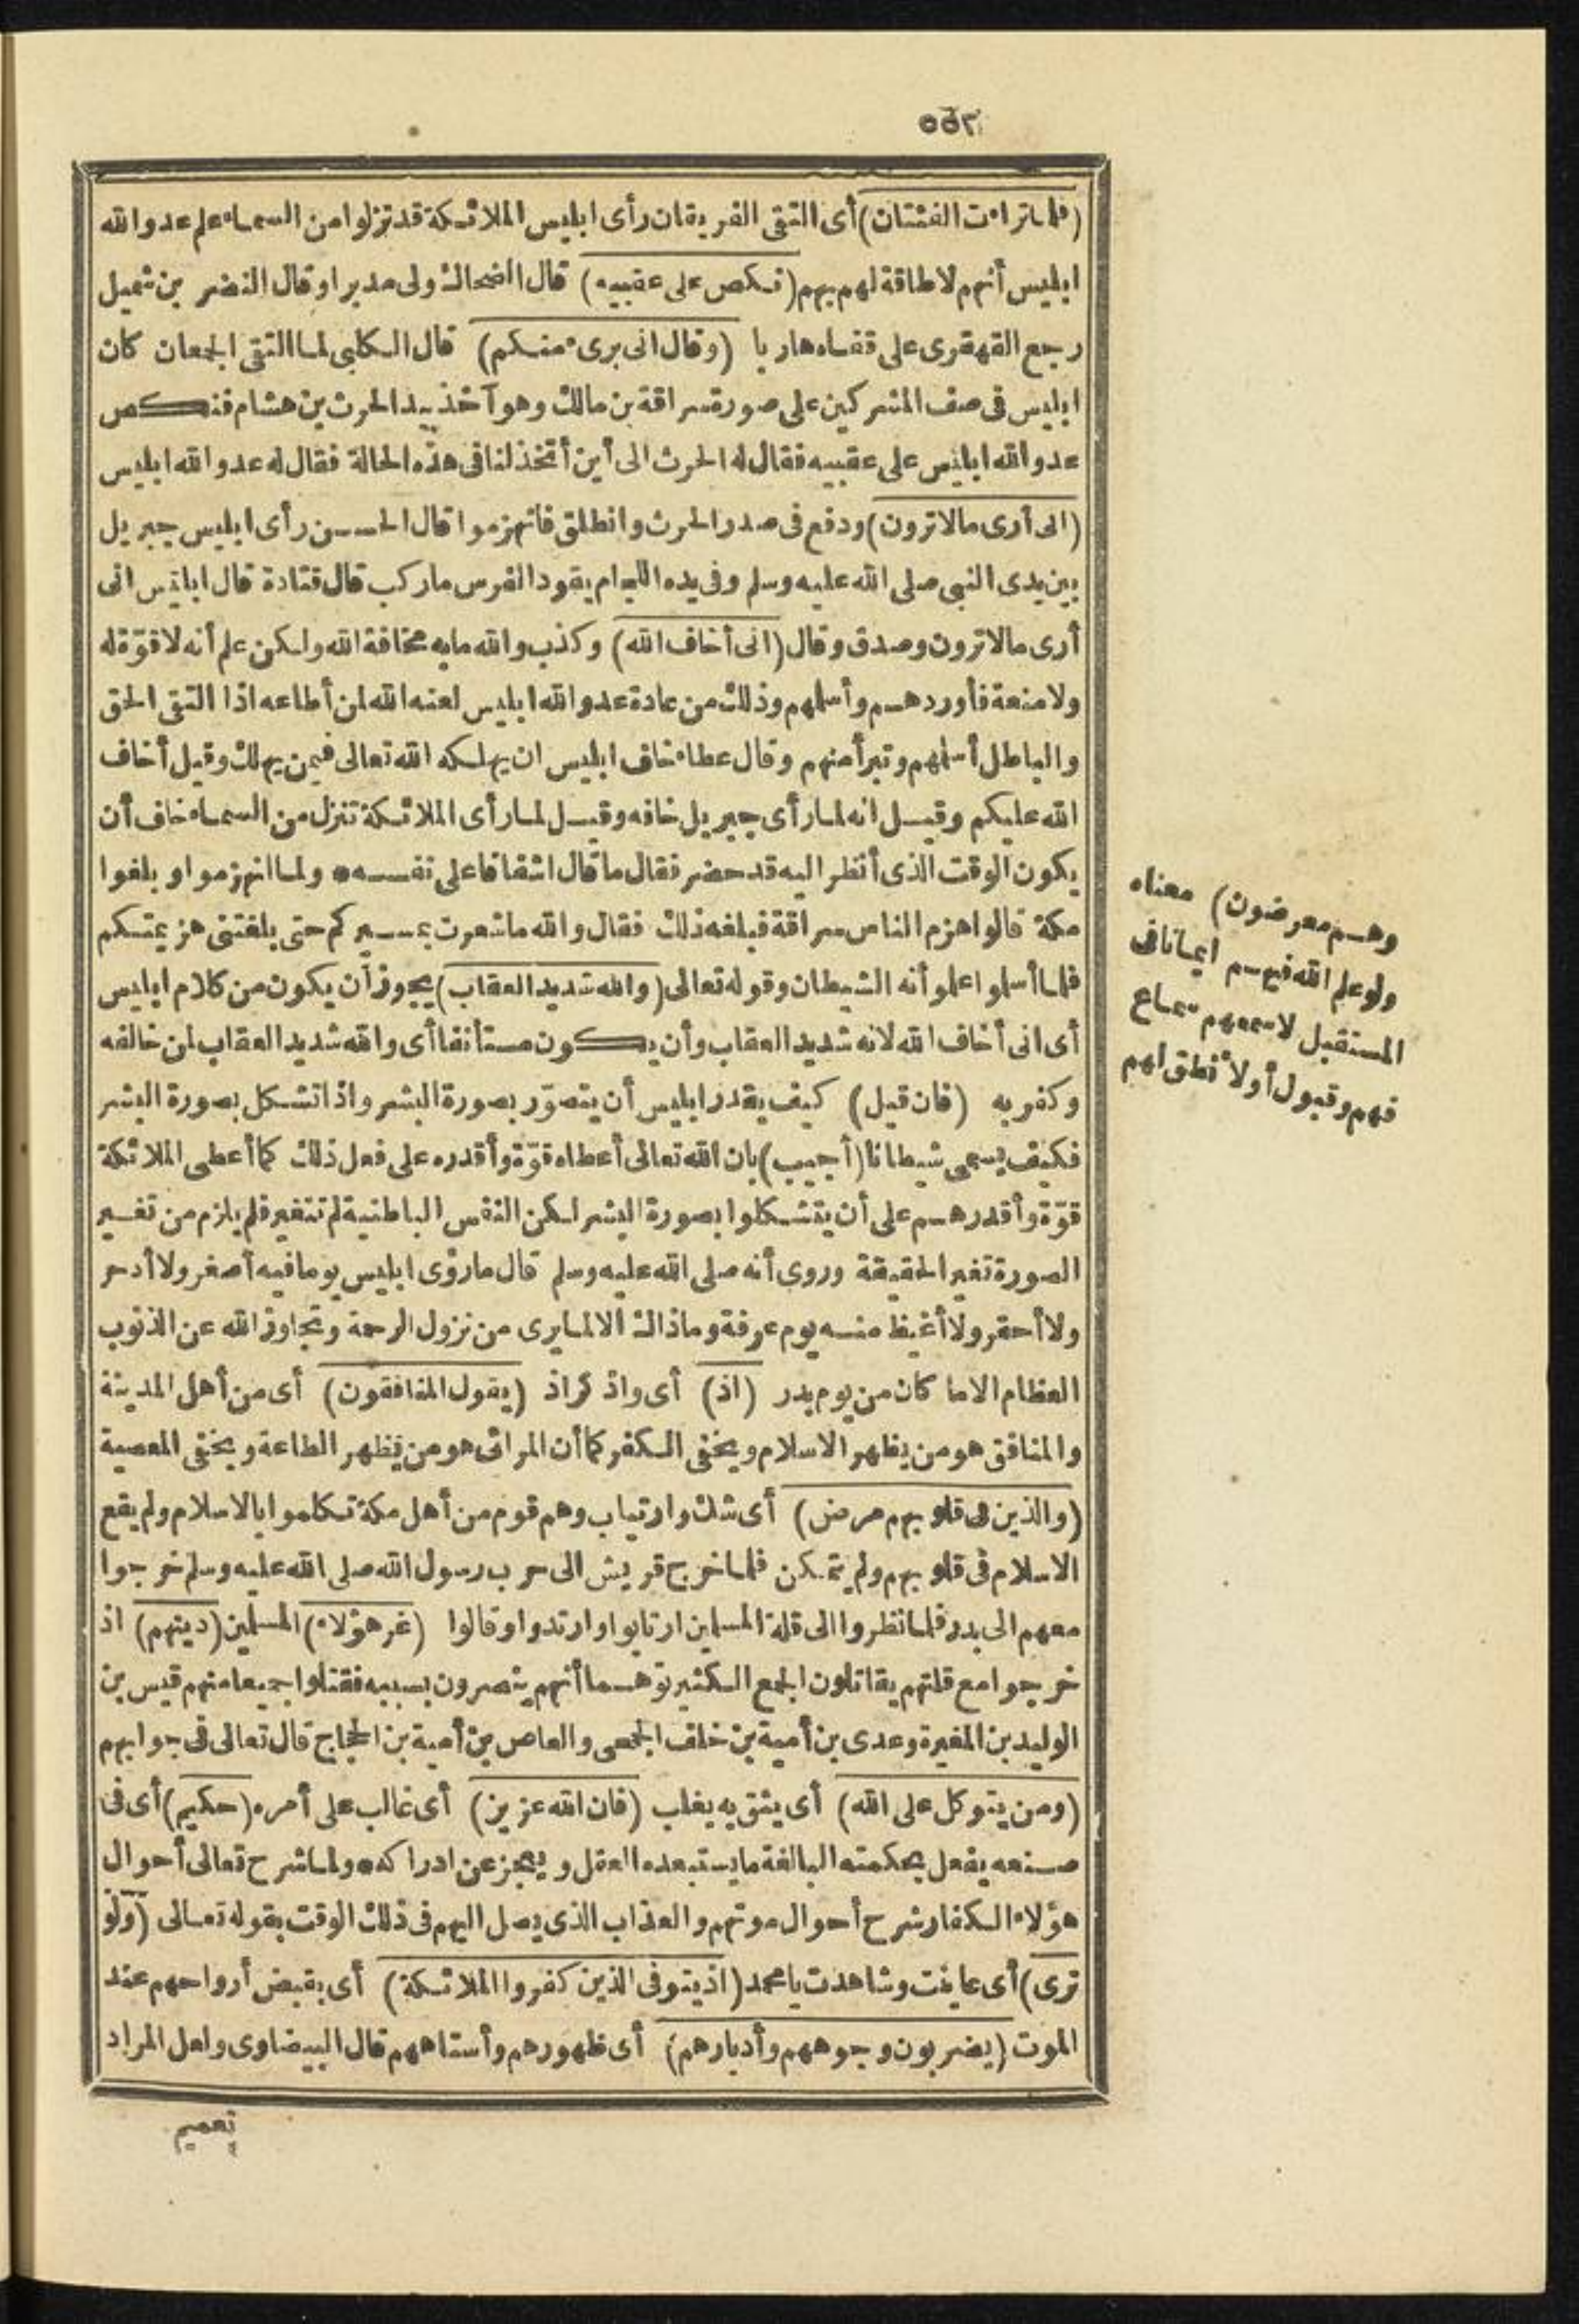 ٥٥٣
(فلما تراءت الفئتان) أى التقى الفريقان رأى ابليس الملائكة قد تزلوا من السماء علم عدو الله
ابليس أنهم لا طاقة لهم بهم (نكص على عقبيه) قال الضحاك ولى مدبرا وقال النضر بن شميل
رجع القهقرى على قفاه هاربا (وقال انى برىء منكم) قال الكلبى لما التقى الجمعان كان
ابليس فى صف المشركين على صورة سراقة بن مالك وهو آخذ بيد الحرث بن هشام فنكص
عدو الله ابليس على عقبيه فقال له الحرث الى أين أتخذلنا فى هذه الحالة فقال له عدو الله ابليس
(انى أرى مالا ترون) ودفع فى صدر الحرث وانطلق فانهزموا قال الحسن رأى ابليس جبريل
بين يدى النبى صلى الله عليه وسلم وفى يده اللجام يقود الفرس ماركب قال قتادة قال ابليس انى
أرى مالا ترون وصدق وقال (انى أخاف الله) وكذب والله مابه مخافة الله ولكن علم أنه لا قوّة له
ولا منعة فأوردهم وأسلمهم وذلك من عادة عدو الله ابليس لعنه الله لمن أطاعه اذا التقى الحق
والباطل أسلمهم وتبرأ منهم وقال عطاء خاف ابليس ان يهلكه الله تعالى فيمن يهلك وقيل أخاف
الله عليكم وقيل انه لما رأى جبريل خافه وقيل لما رأى الملائكة تنزل من السماء خاف أن
يكون الوقت الذى أنظر اليه قد حضر فقال ما قال اشفاقا على نفسه * ولما انهزموا وبلغوا
مكة قالوا هزم الناس سراقة فبلغه ذلك فقال والله ما شعرت بمسيركم حتى بلغتنى هزيمتكم
فلما أسلموا علموا أنه الشيطان وقوله تعالى (والله شديد العقاب) يجوز أن يكون من كلام ابليس
أى انى أخاف الله لانه شديد العقاب وأن يكون مستأنفا أى والله شديد العقاب لمن خالفه
وكفر به (فان قيل) كيف يقدر ابليس أن يتصوّر بصورة البشر واذا تشكل بصورة البشر
فكيف يسمى شيطانا (أجيب) بان الله تعالى أعطاه قوّة وأقدره على فعل ذلك كما أعطى الملائكة
قوّة وأقدرهم على أن يتشكلوا بصورة البشر لكن النفس الباطنية لم تتغير فلم يلزم من تغير
الصورة تغير الحقيقة وروى أنه صلى الله عليه وسلم قال مارؤى ابليس يوما فيه أصغر ولا أدحر
ولا أحقر ولا أغيظ منه يوم عرفة وما ذاك الا لما يرى من نزول الرحمة وتجاوز الله عن الذنوب
العظام الا ما كان من يوم بدر (اذ) أى واذكر اذ (يقول المنافقون) أى من أهل المدينة
والمنافق هو من يظهر الاسلام ويخفى الكفر كما أن المرائى هو من يظهر الطاعة ويخفى المعصية
(والذين فى قلوبهم مرض) أى شك وارتياب وهم قوم من أهل مكة تكلموا بالاسلام ولم يقع
الاسلام فى قلوبهم ولم يتمكن فلما خرج قريش الى حرب رسول الله صلى الله عليه وسلم خرجوا
معهم الى بدر فلما نظروا الى قلة المسلمين ارتابوا وارتدوا وقالوا (غر هؤلاء) المسلمين (دينهم) اذ
خرجوا مع قلتهم يقاتلون الجمع الكثير توهما أنهم ينصرون بسببه فقتلوا جميعا منهم قيس بن
الوليد بن المغيرة وعدى بن أمية بن خلف الجمحى والعاص بن أمية بن الحجاج قال تعالى فى جوابهم
(ومن يتوكل على الله) أى يثق به يغلب (فان الله عزيز) أى غالب على أمره (حكيم) أى فى
صنعه يفعل بحكمته البالغة ما يستبعده العقل ويعجز عن ادراكه * ولما شرح تعالى أحوال
هؤلاء الكفار شرح أحوال موتهم والعذاب الذى يصل اليهم فى ذلك الوقت بقوله تعالى (ولو
ترى) أى عاينت وشاهدت يا محمد (اذ يتوفى الذين كفروا الملائكة) أى بقبض أرواحهم عند
الموت (يضربون وجوههم وأدبارهم) أى ظهورهم وأستاههم قال البيضاوى ولعل المراد
تعميم
وهم معرضون) معناه
ولو علم الله فيهم ايمانا فى
المستقبل لاسمعهم سماع
فهم وقبول أو لأنطق لهم